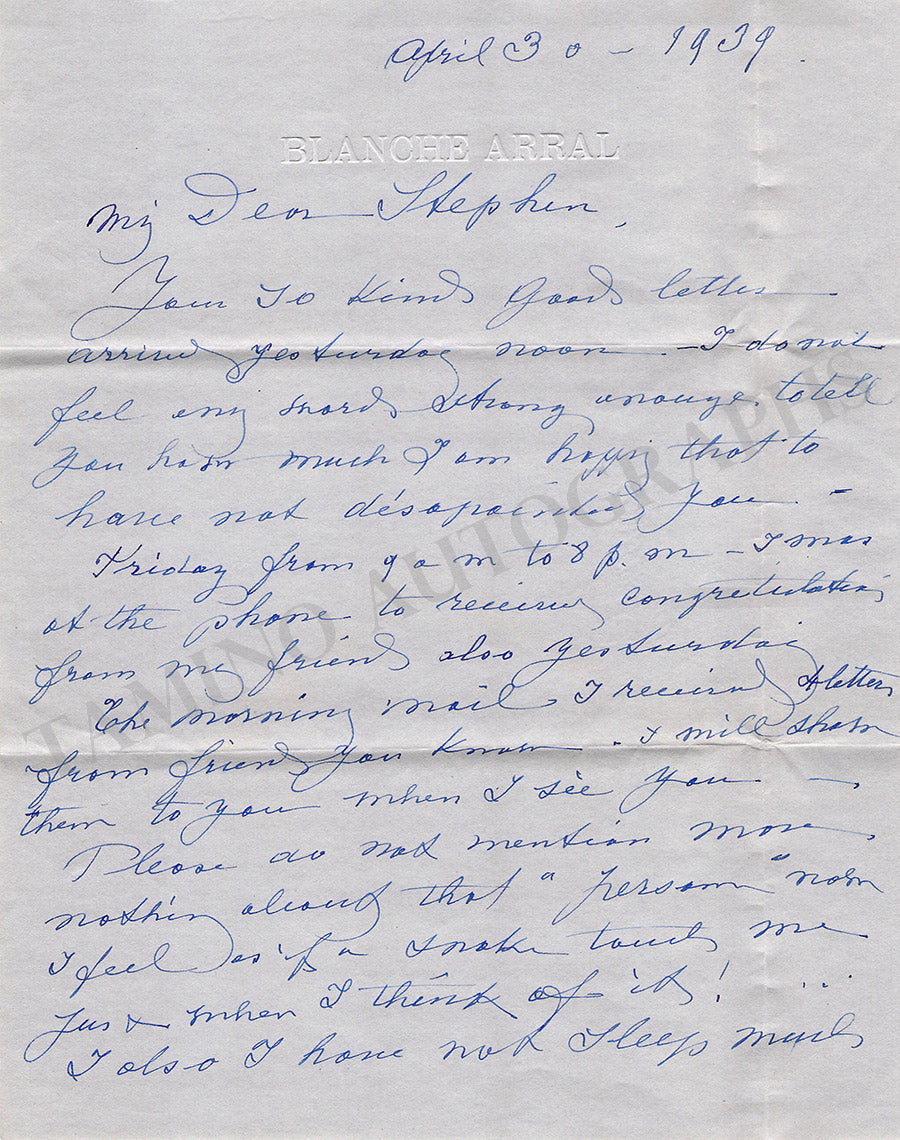 April 30 - 1939
BLANCHE ARRAL
My Dear Stephen,
Your so kind good letter
arrived yesturday noon - I do not
feel any words strong enouge to tell
you how much I am happy that to
have not désapointed you -
Friday from 9 a m to 8 p. m - I was
at the phone to received congretulations
from my friend also yesturday
The morning mail I received 4 letters
from friend you know - I will show
them to you when I see you -
Please do not mention more
nothing about that "person" now
I feel as if a snake touch me
jus when I think of it! ...
I also I have not sleep much
TAMINO AUTOGRAPHS